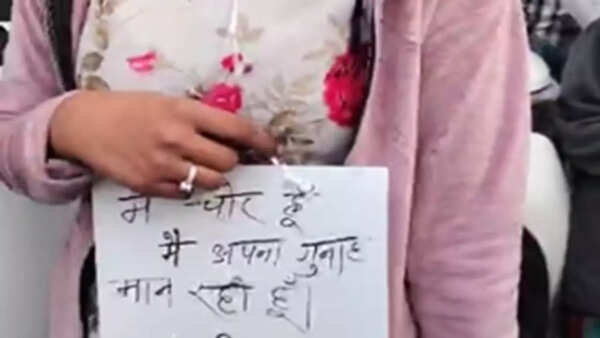 मै चोर हूँ
मै अपना गुनाह
मान रही हूँ।